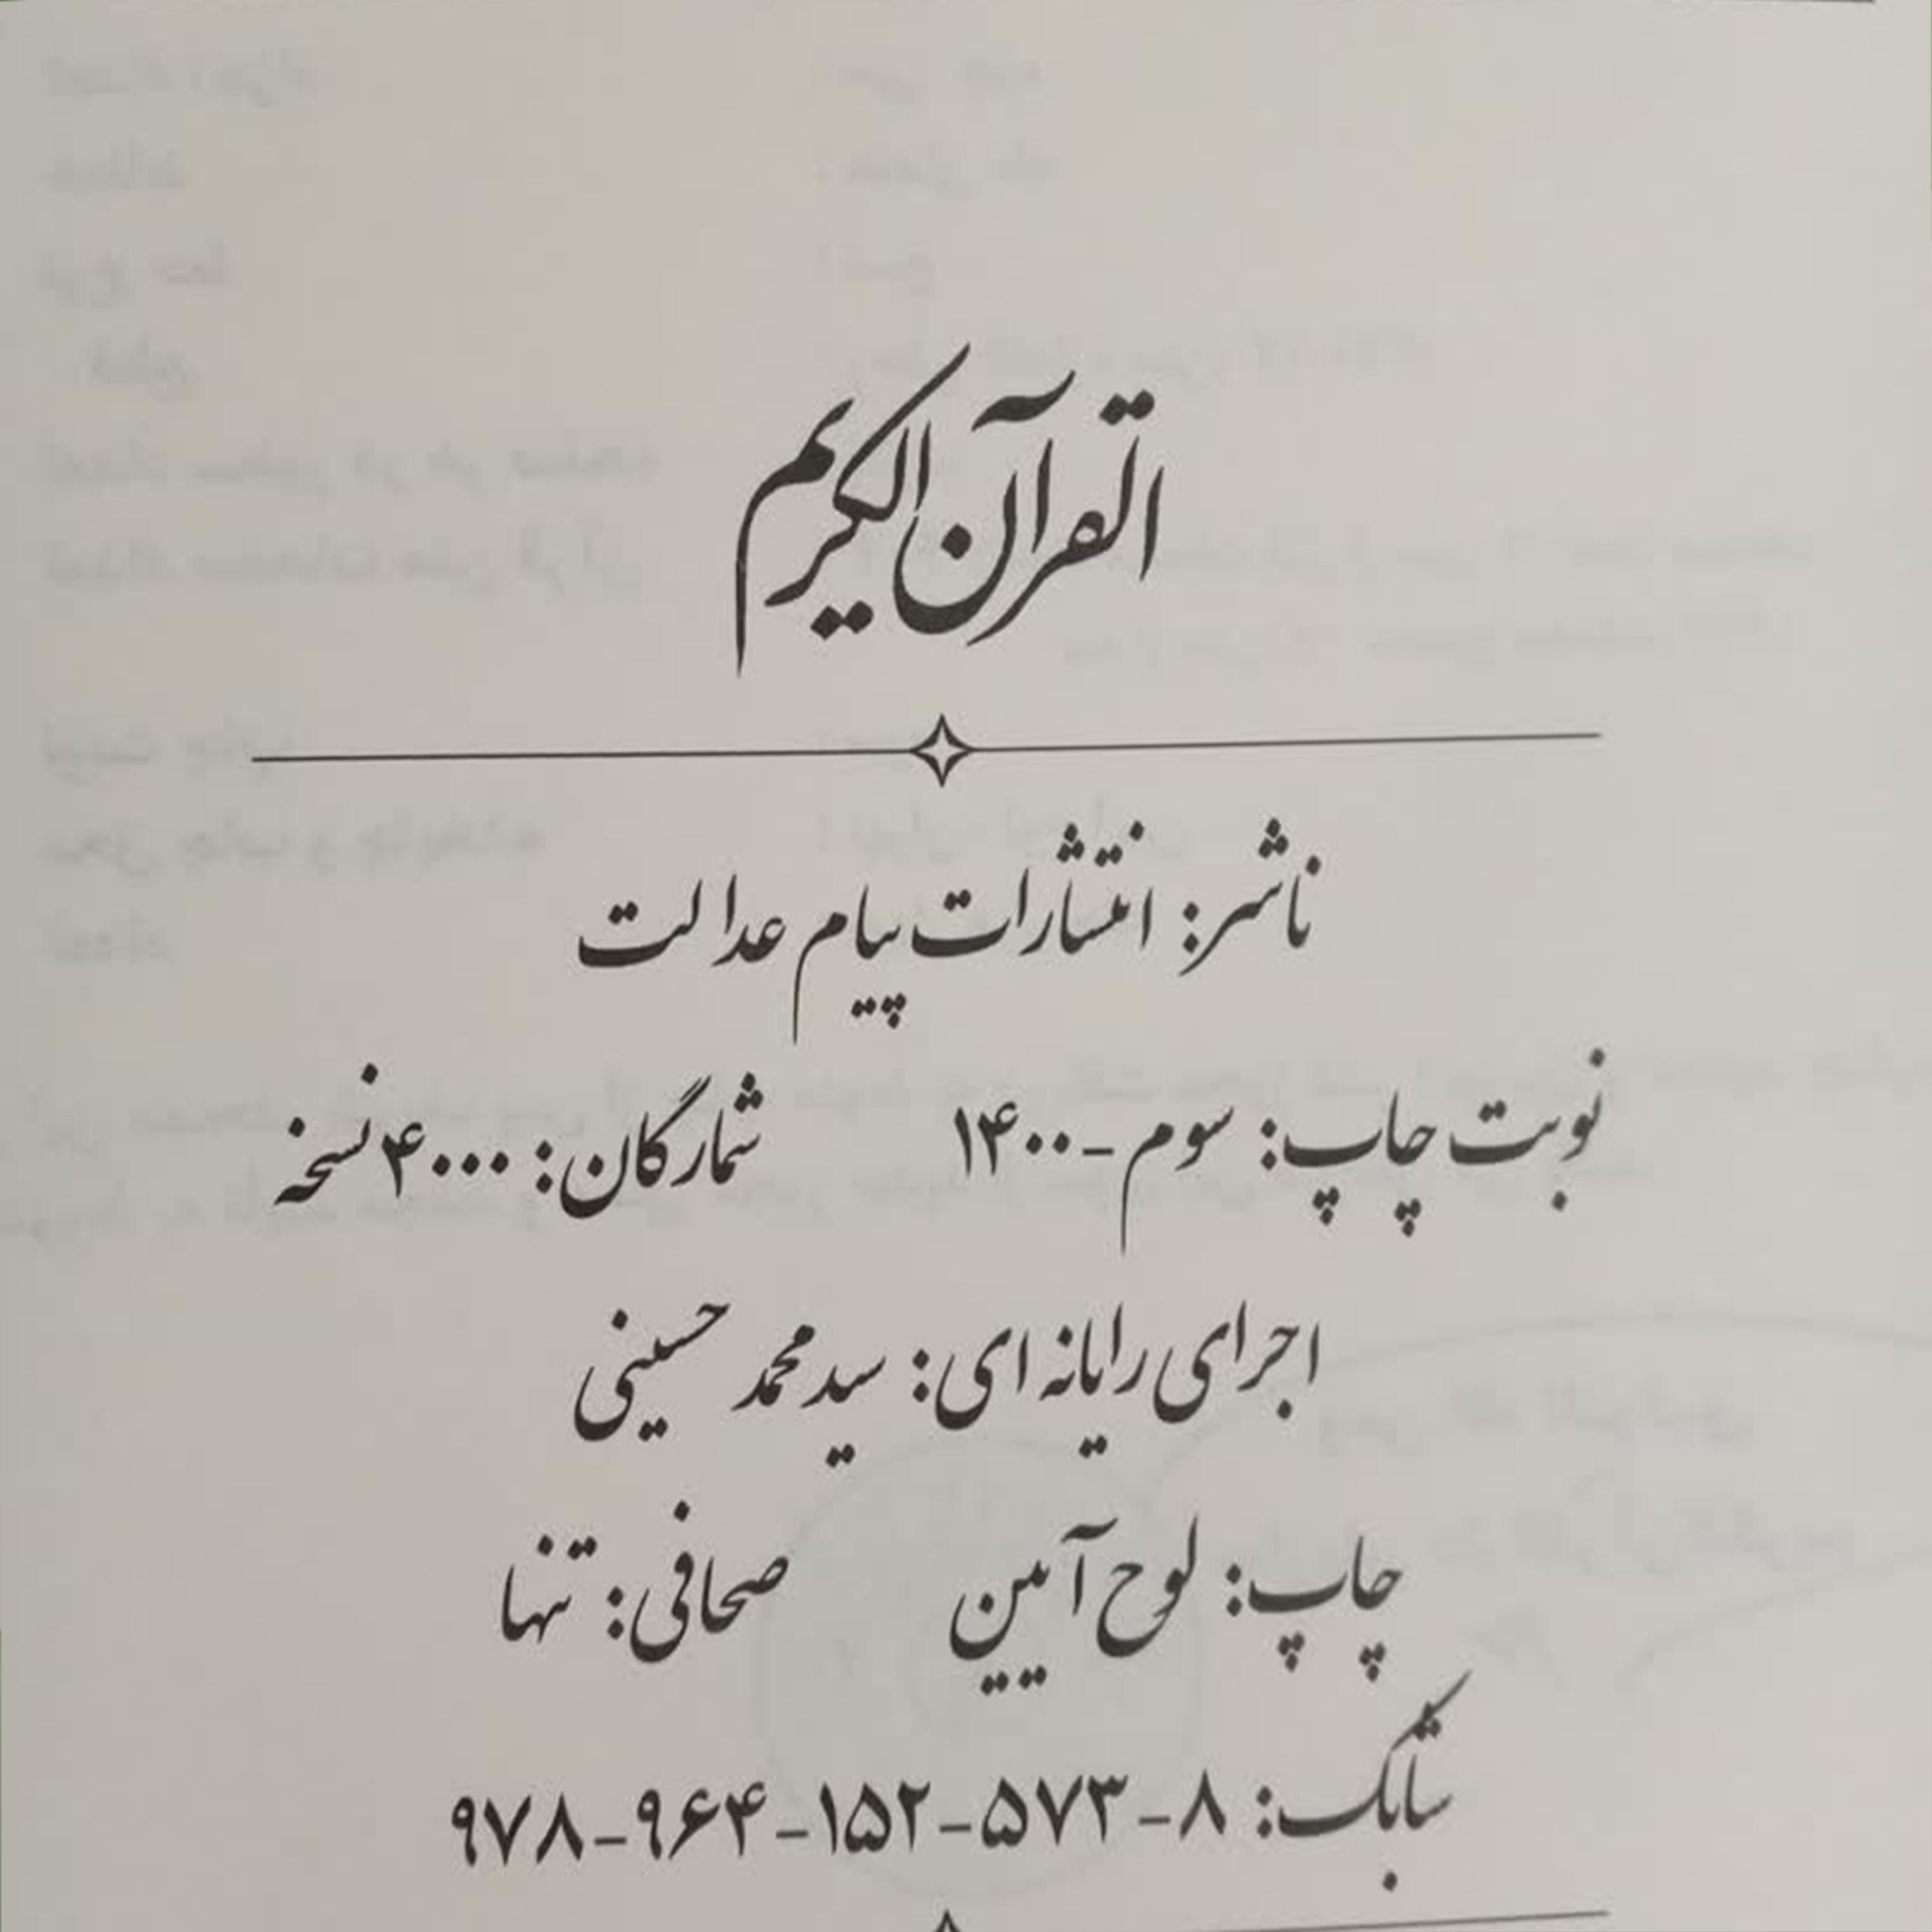 القرآن الکریم
ناشر: انتشارات پیام عدالت
نوبت چاپ: سوم - ۱۴۰۰ شمارگان: ۴۰۰۰ نسخه
اجرای رایانه ای: سید محمد حسینی
چاپ: لوح آیین صحافی: تنها
شابک: ۸-۵۷۳-۱۵۲-۹۶۴-۹۷۸